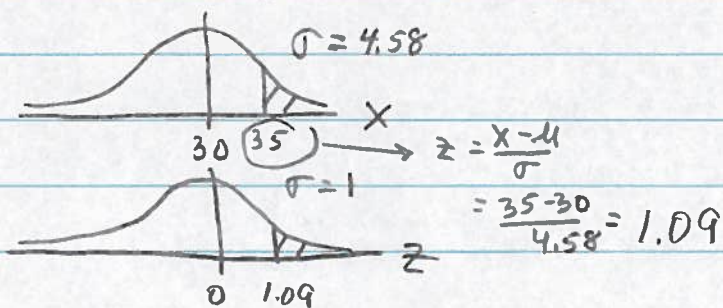 σ = 4.58
X
30 35 → z = x-μ/σ
σ = 1
= 35-30/4.58 = 1.09
z
0 1.09